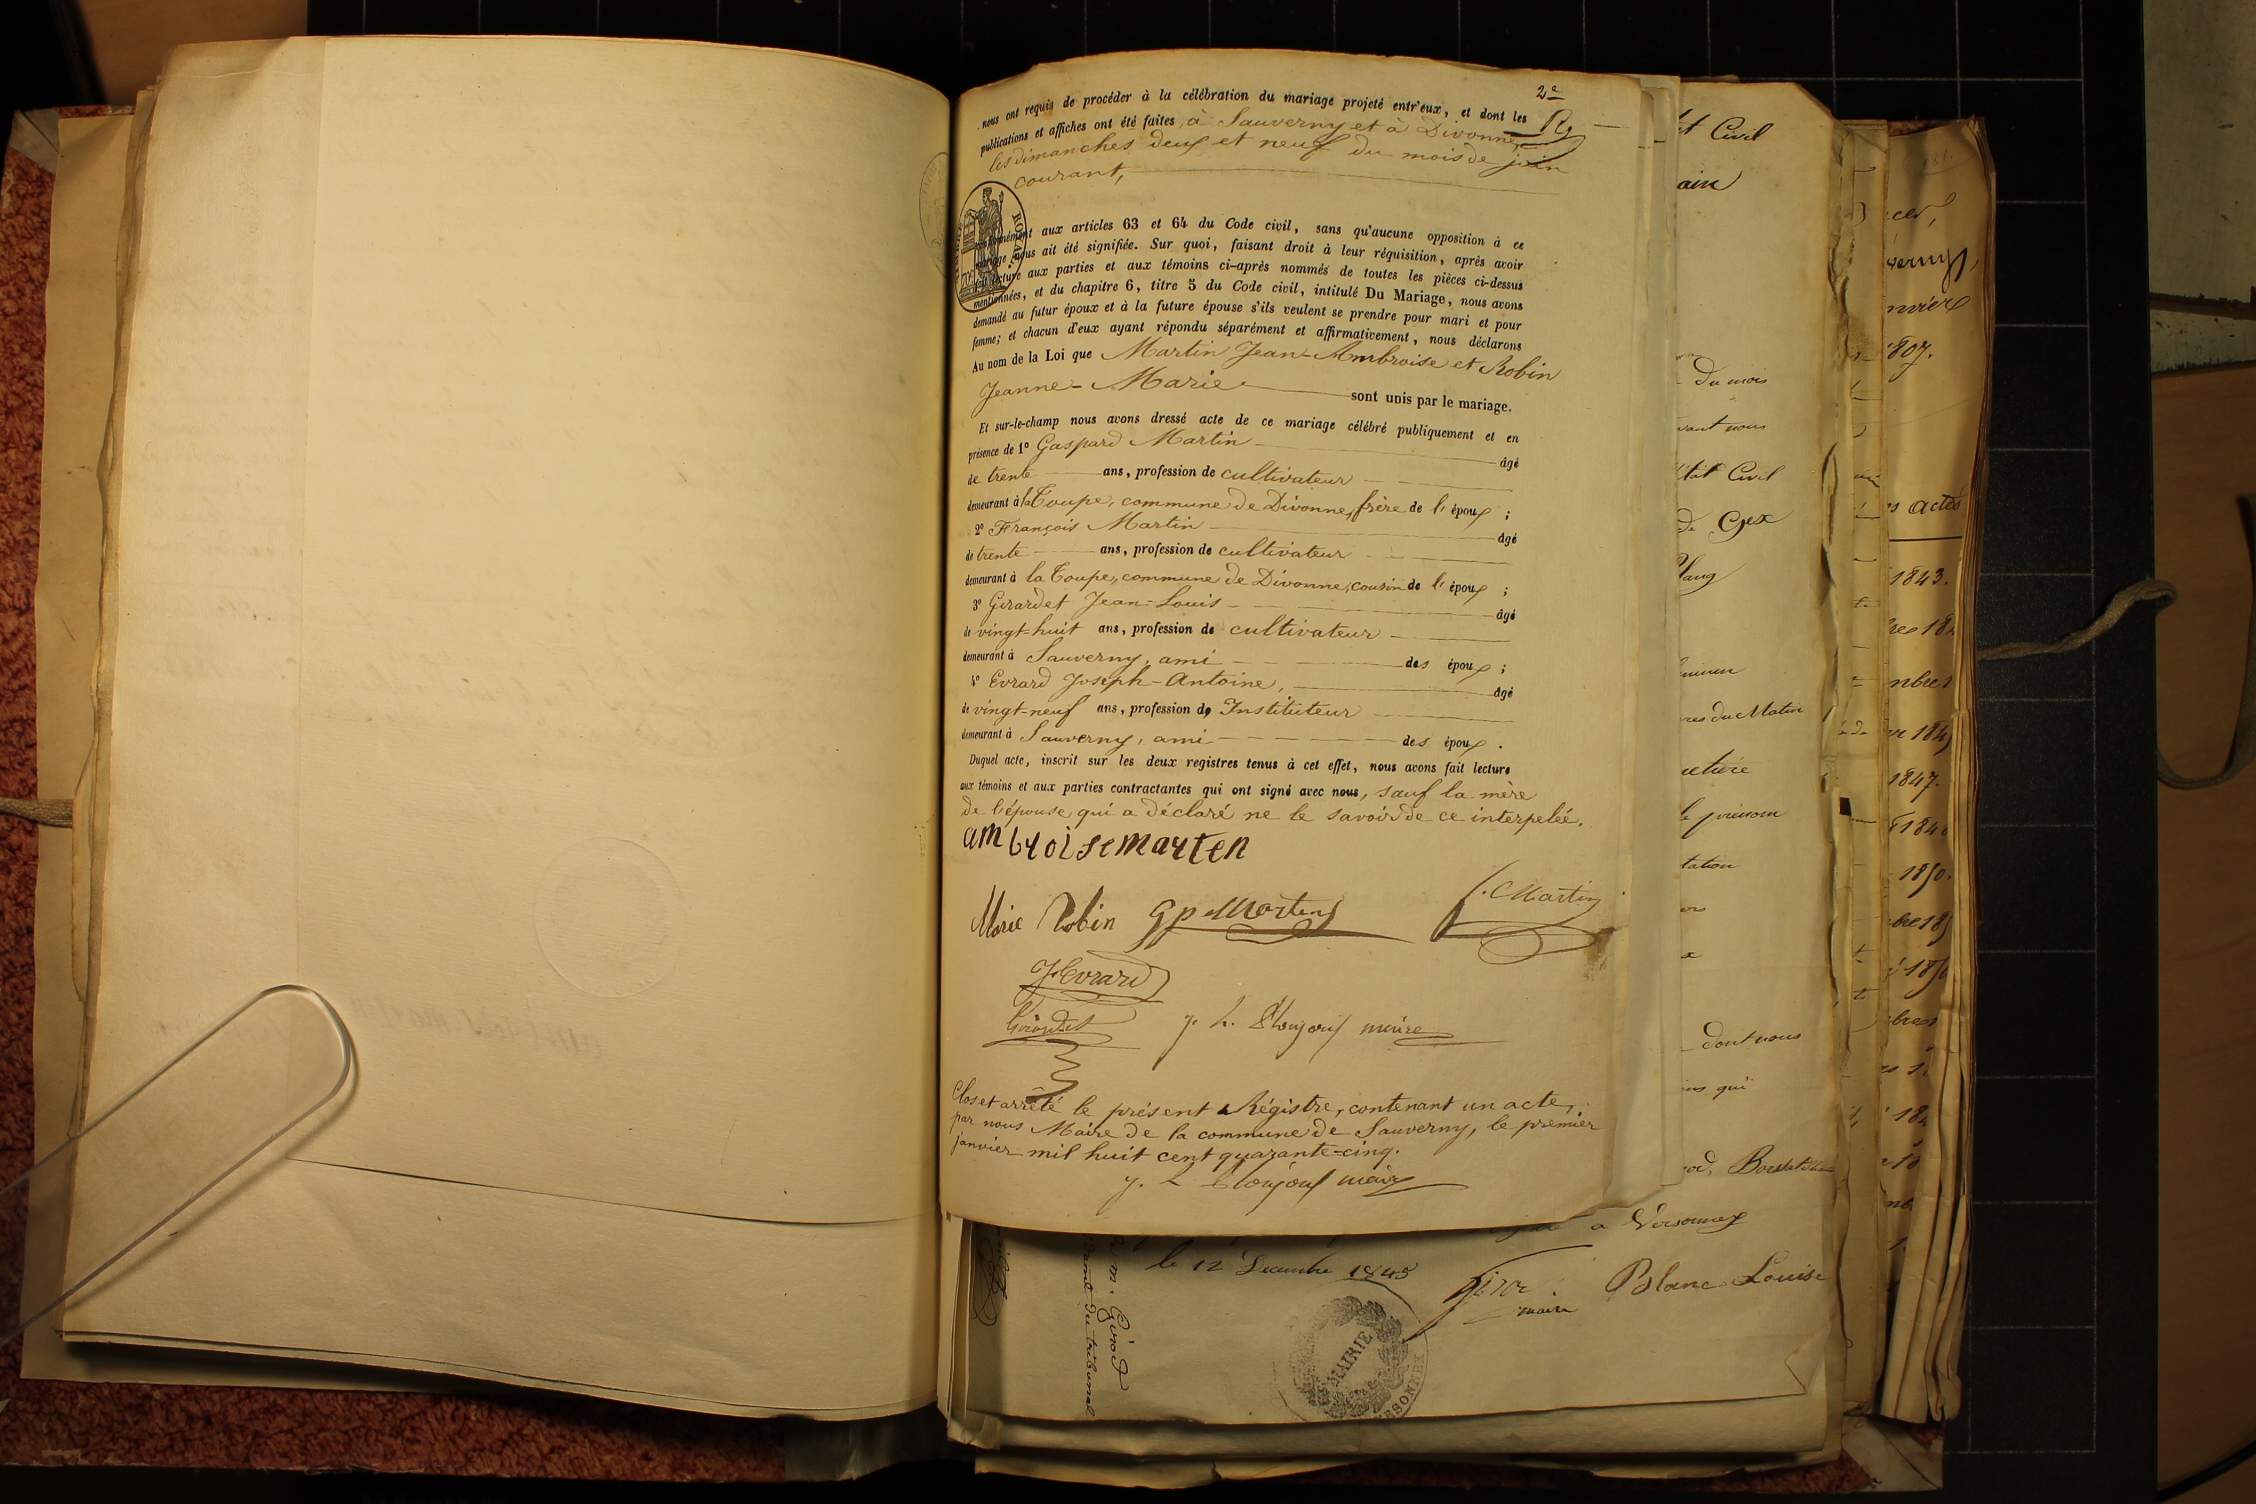 2e
nous ont requis de procéder à la célébration du mariage projeté entr'eux, et dont les
publications et affiches ont été faites à Sauverny et à Divonne,
les dimanches deux et neuf du mois de juin
courant,
ROYAL
conformément aux articles 63 et 64 du Code civil, sans qu'aucune opposition à ce
mariage nous ait été signifiée. Sur quoi, faisant droit à leur réquisition, après avoir
fait lecture aux parties et aux témoins ci-après nommés de toutes les pièces ci-dessus
mentionnées, et du chapitre 6, titre 5 du Code civil, intitulé Du Mariage, nous avons
demandé au futur époux et à la future épouse s'ils veulent se prendre pour mari et pour
femme; et chacun d'eux ayant répondu séparément et affirmativement, nous déclarons
Au nom de la Loi que Martin Jean-Ambroise et Robin
Jeanne-Marie sont unis par le mariage.
Et sur-le-champ nous avons dressé acte de ce mariage célébré publiquement et en
présence de 1° Gaspard Martin âgé
de trente ans, profession de cultivateur
demeurant à la Toupe, commune de Divonne, frère de l'époux ;
2° François Martin âgé
de trente ans, profession de cultivateur
demeurant à la Toupe, commune de Divonne, cousin de l'époux ;
3° Girardet Jean-Louis âgé
de vingt-huit ans, profession de cultivateur
demeurant à Sauverny, ami des époux ;
4° Evrard Joseph-Antoine, âgé
de vingt-neuf ans, profession de Instituteur
demeurant à Sauverny, ami des époux.
Duquel acte, inscrit sur les deux registres tenus à cet effet, nous avons fait lecture
aux témoins et aux parties contractantes qui ont signé avec nous, sauf la mère
de l'épouse qui a déclaré ne le savoir de ce interpelée.
ambroise marten
Marie Robin Gp Marten f. Martin
J. Evrard
Girardet
Clos et arrêté le présent Régistre, contenant un acte,
par nous Maire de la commune de Sauverny, le premier
janvier mil huit cent quarante-cinq.
le 12 Decembre 1845
maire
Blanc Louise
MAIRIE
Girod
du tribunal
Civil
du mois
vant nous
Civil
de Gex
du Matin
le prénom
dont nous
qui
a Versonnex
1807.
actes
1843.
1847.
1850.